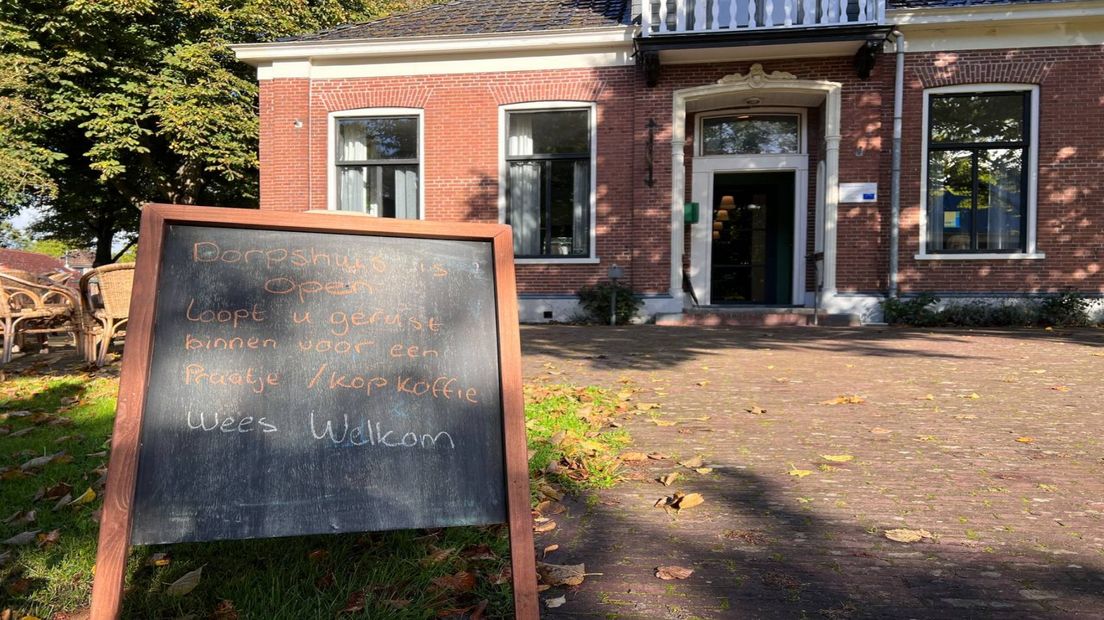 Dorpshuis is
Open
Loopt u gerust
binnen voor een
Praatje / kop koffie
Wees Welkom